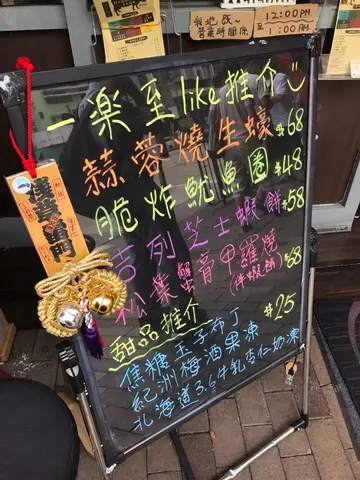 我地既~
營業時間係
12:00PM
至
1:00AM
一楽至like推介
蒜蓉燒生蠔 $68
脆炸魷魚圈 $48
吉列芝士蝦餅 $58
松葉蟹膏甲羅燒 $68
(伴蝦餅)
甜品推介
焦糖玉子布丁 $25
紀洲梅酒果凍
北海道3.6牛乳杏仁奶凍